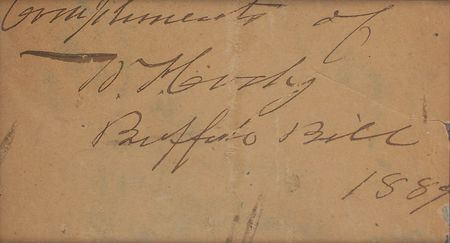 Compliments of
W. F. Cody
Buffalo Bill
1889